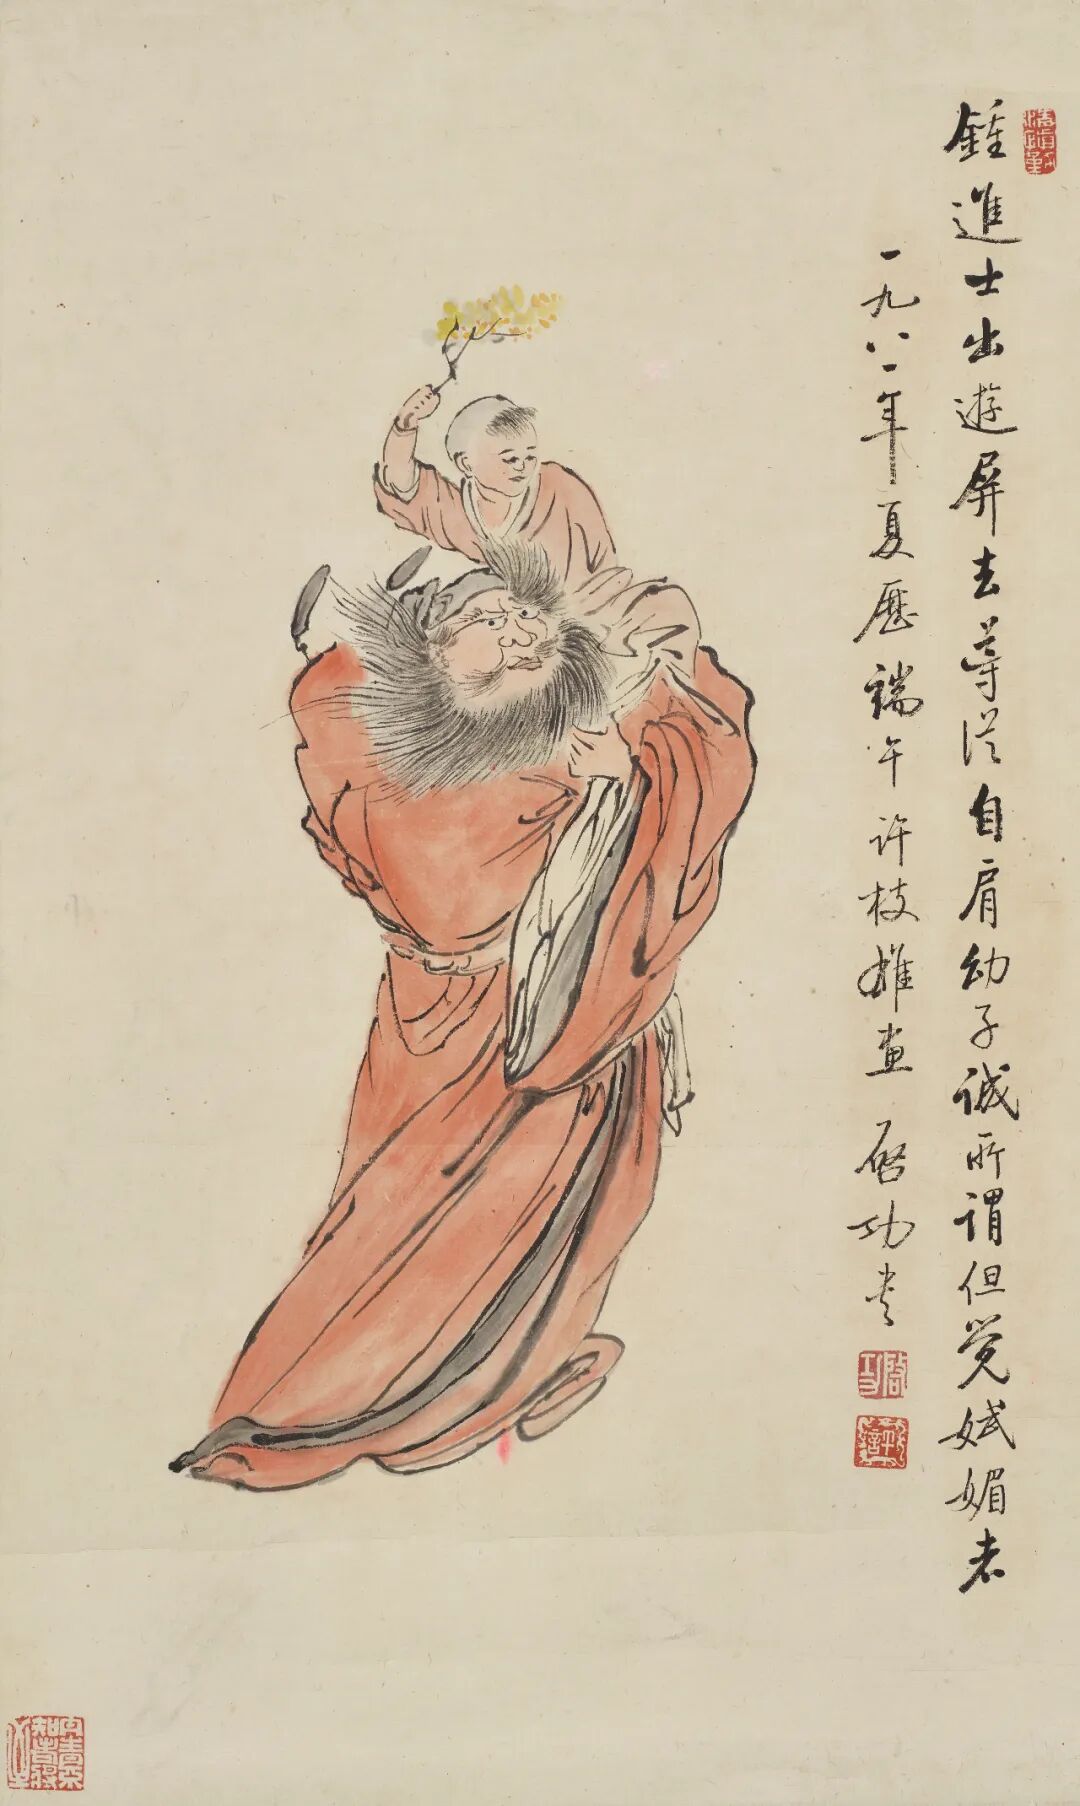 鍾進士出遊屏去導從自肩幼子誠所謂但覺娬媚者
一九八一年夏歷端午許枝雄畫 啓功書
啓功